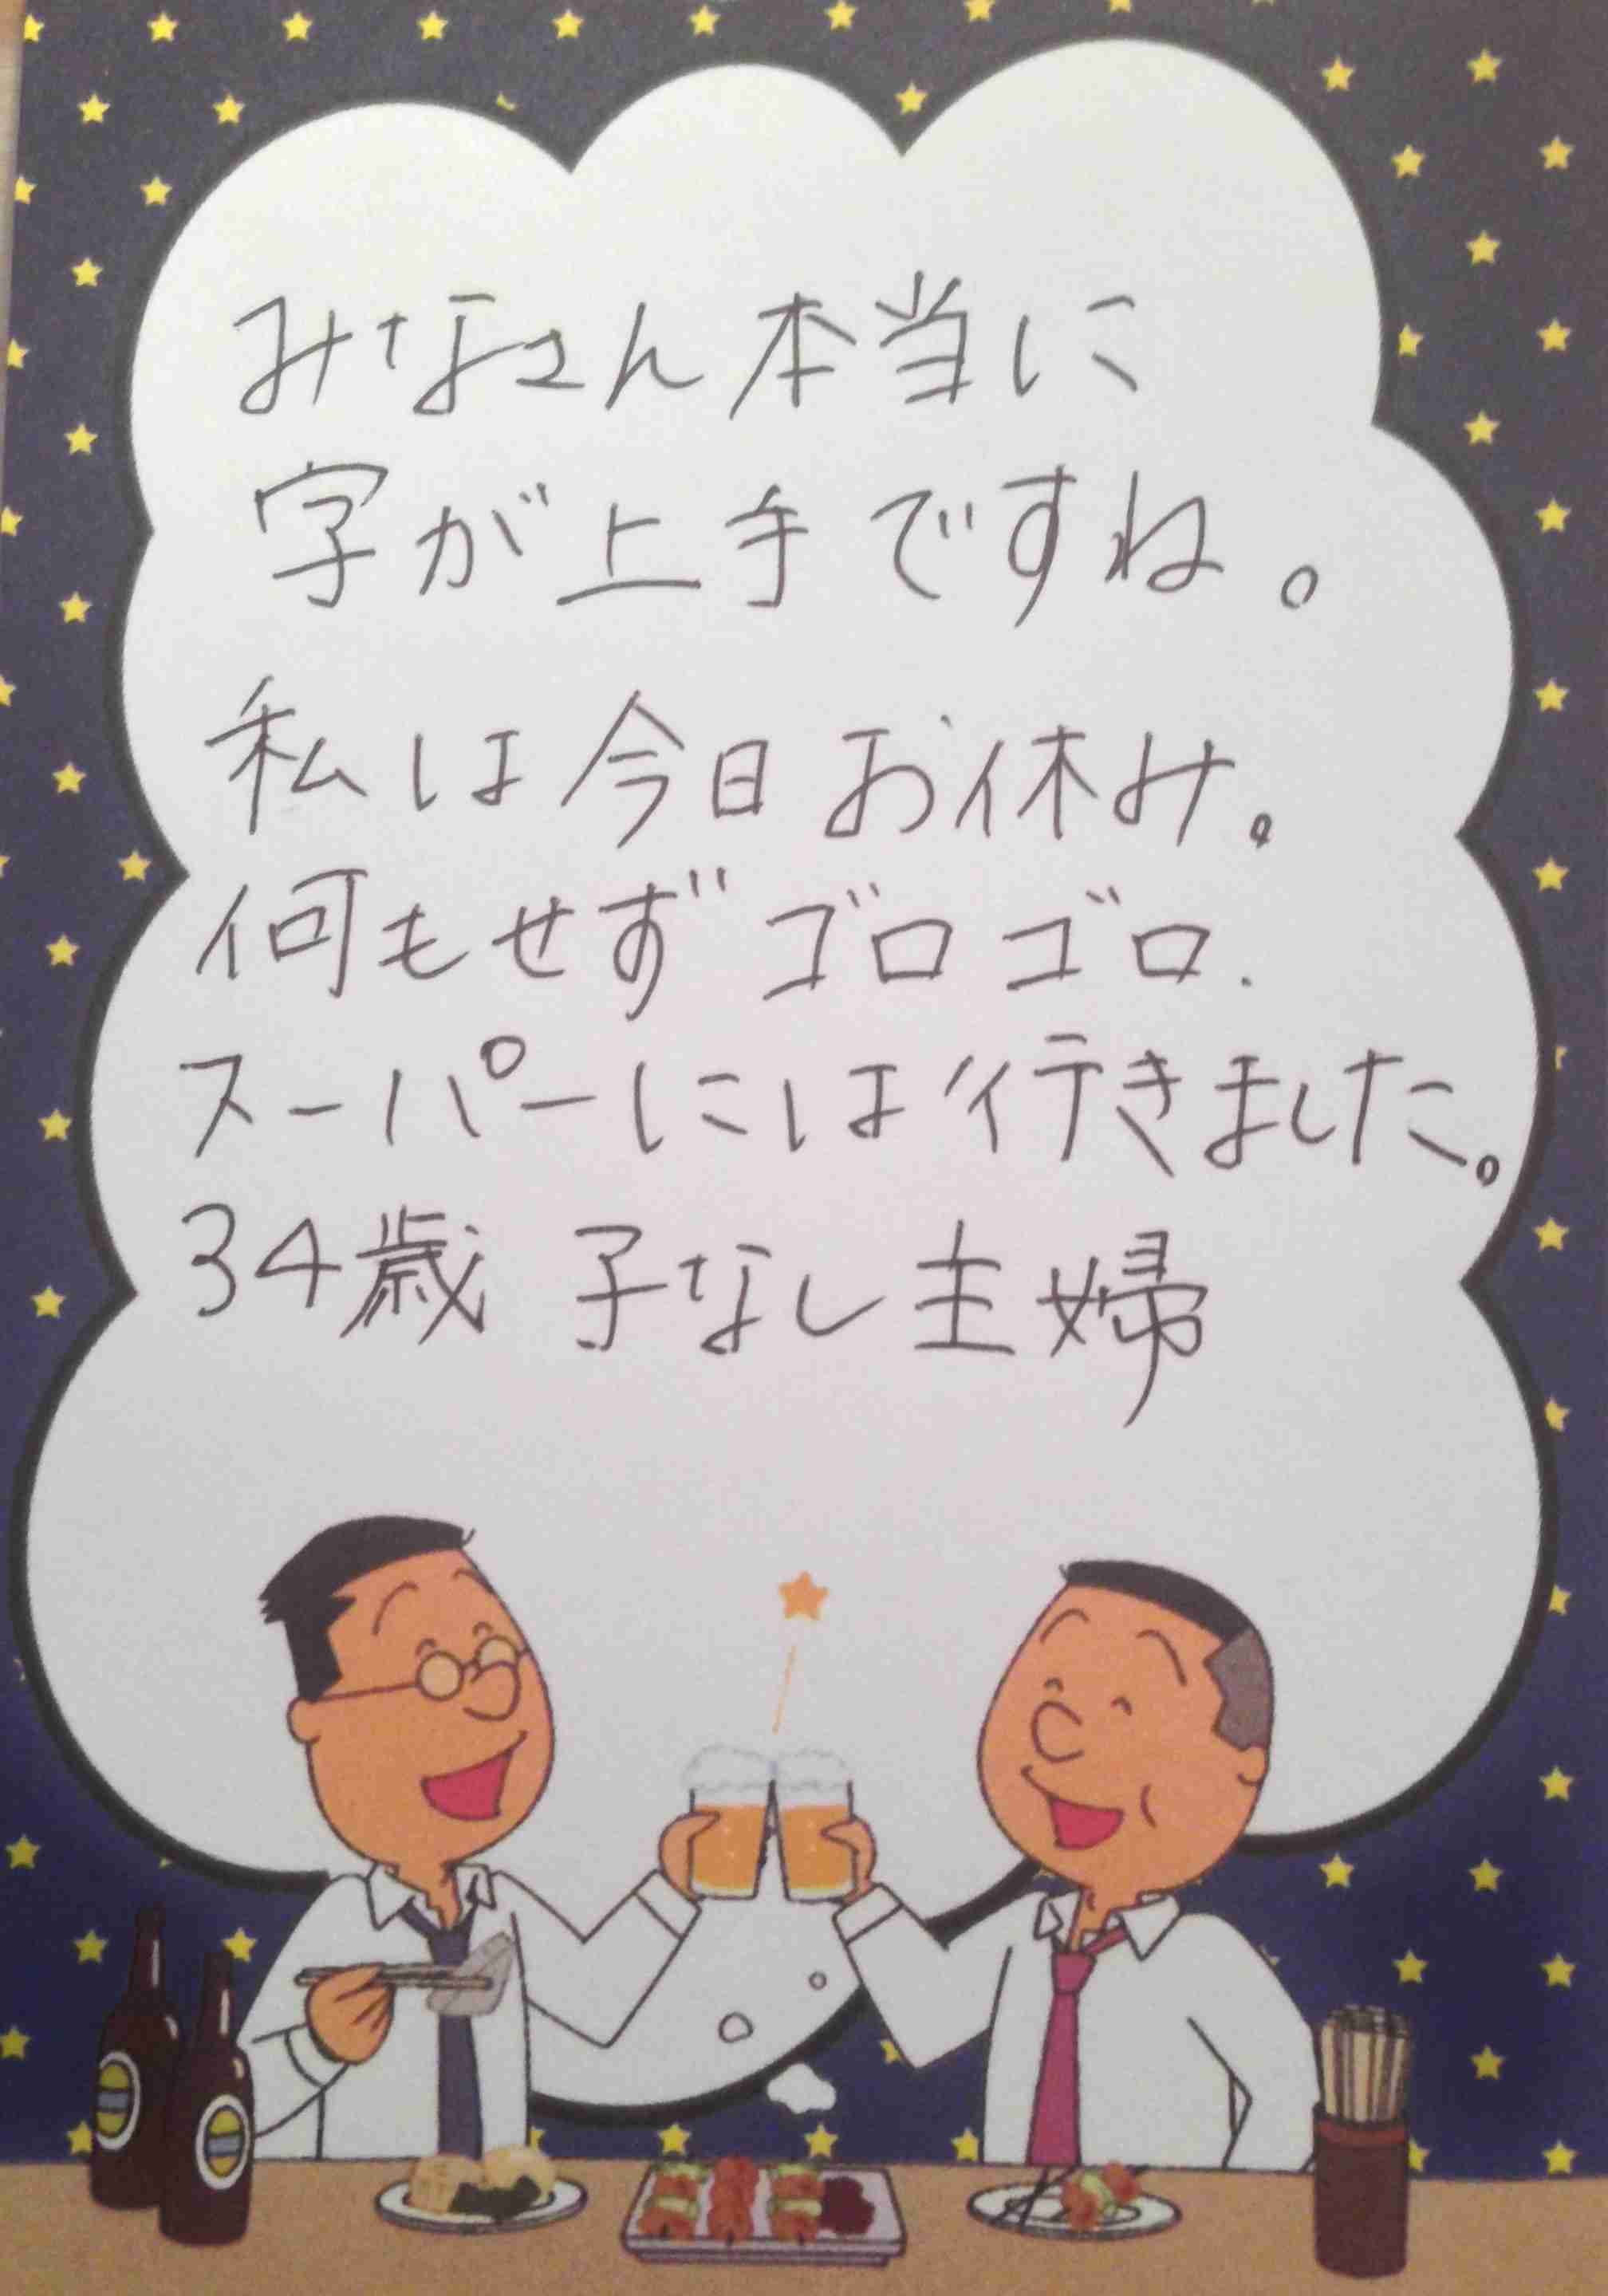 みなさん本当に
字が上手ですね。
私は今日お休み。
何もせずゴロゴロ.
スーパーには行きました。
34歳 子なし主婦